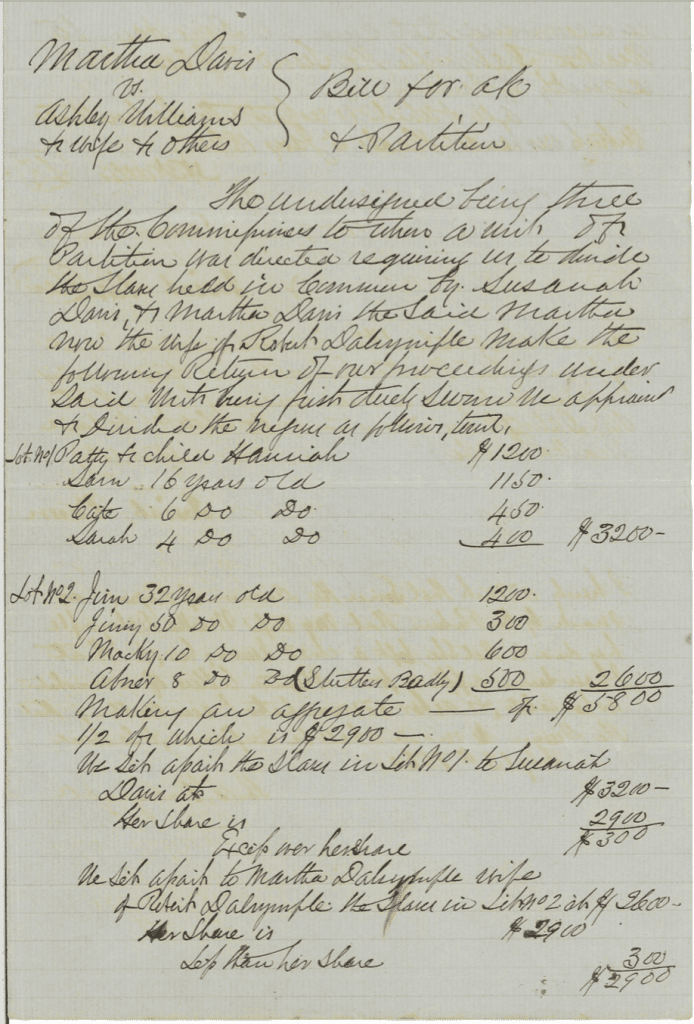 Martha Davis
vs.
Ashley Williams
& wife & others
Bill for a/c
& Partition
The undersigned being three
of the Commissioners to whom a writ of
Partition was directed requiring us to divide
the Slaves held in Common by Susanah
Davis, & Martha Davis the Said Martha
now the wife of Robert Dalrymple make the
following Return of our proceedings under
Said Writ being first duly Sworn We appraised
& Divided the negroes as follows, towit,
Lot No 1 Patty & child Hanniah $1200.
Sam 16 years old 1150.
6 Do Do 450
Sarah 4 Do Do 400 $3200-
Lot No 2. Jim 32 years old 1200.
Jinny 50 Do Do 300
Macky 10 Do Do 600
Abner 8 Do Do (Stutters Badly) 500 2600
Making an aggregate — of $5800
1/2 of which is $2900 —
We Set apart the Slaves in Lot No 1. to Susanah
Davis at $3200-
Her Share is 2900
Excess over her share $300
We Set apart to Martha Dalrymple wife
of Robert Dalrymple the Slaves in Lot No 2 at $2600-
Her Share is $2900
Less than her share 300
$2900